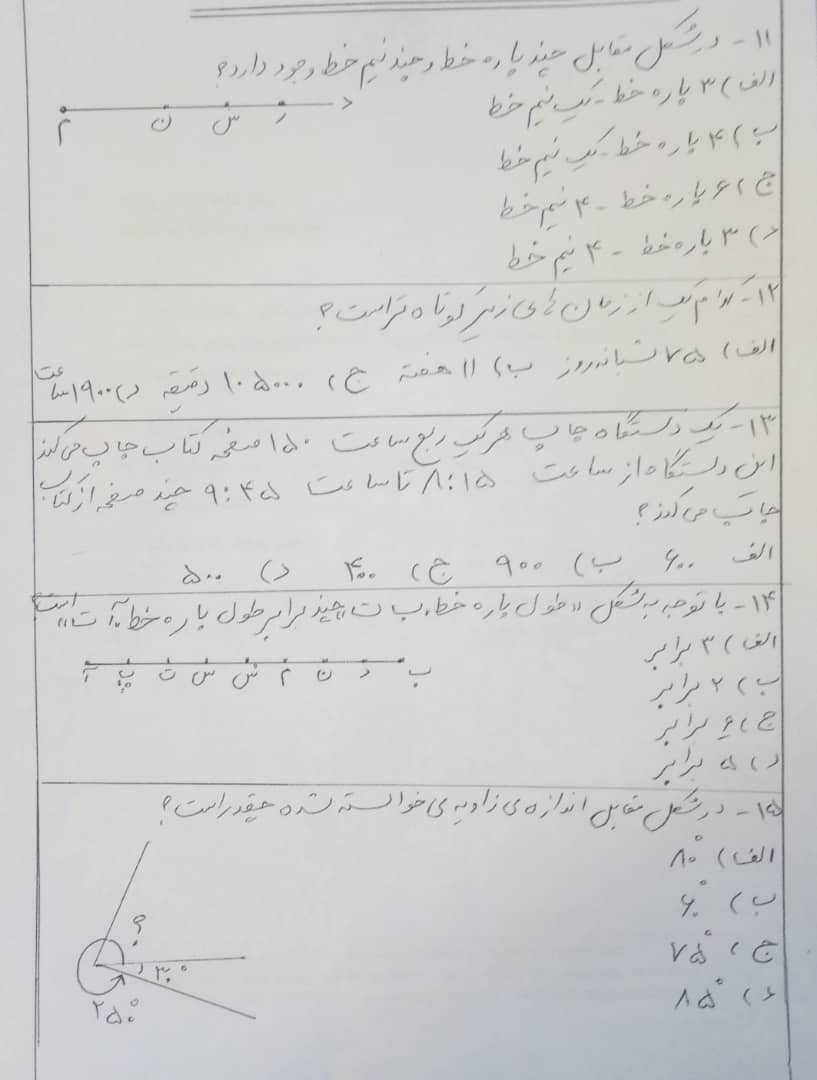 ۱۱- در شکل مقابل چند پاره خط و چند نیم خط وجود دارد؟
الف) ۳ پاره خط - یک نیم خط
ب) ۴ پاره خط - یک نیم خط
ج) ۶ پاره خط - ۴ نیم خط
د) ۳ پاره خط - ۴ نیم خط
م ن س ر
۱۲- کدام یک از زمان های زیر کوتاه تر است؟
الف) ۷۵ شبانه روز ب) ۱۱ هفته ج) ۱۰۵۰۰۰ دقیقه د) ۱۹۰۰ ساعت
۱۳- یک دستگاه چاپ هر یک ربع ساعت ۱۵۰ صفحه کتاب چاپ می کند
این دستگاه از ساعت ۸:۱۵ تا ساعت ۹:۴۵ چند صفحه از کتاب
چاپ می کند؟
الف ۶۰۰ ب) ۹۰۰ ج) ۴۰۰ د) ۵۰۰
۱۴- با توجه به شکل «طول پاره خط ب ت» چند برابر طول پاره خط «آ ت» است
الف) ۳ برابر
ب) ۲ برابر
ج) ۶ برابر
د) ۵ برابر
آ پ ت س ش م ن د ب
۱۵- در شکل مقابل اندازه ی زاویه ی خواسته شده چقدر است؟
الف) ۸۰°
ب) ۶۰°
ج) ۷۵°
د) ۸۵°
؟
۳۰°
۲۵۰°